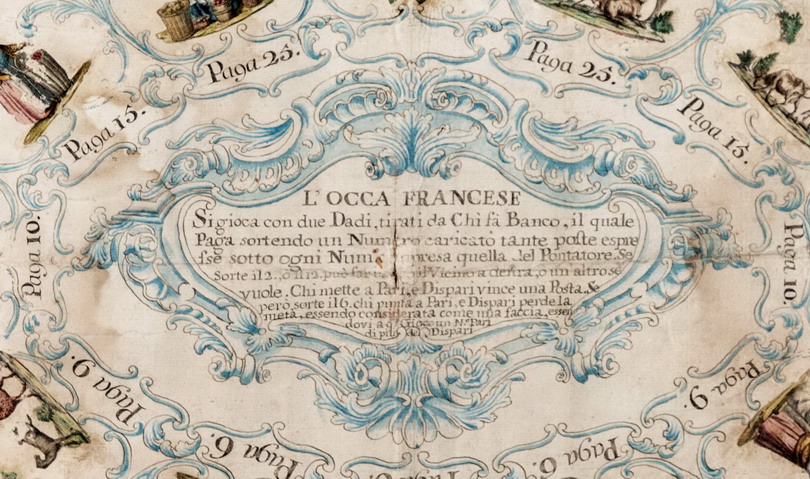 Paga 25. Paga 25.
Paga 15. Paga 15.
Paga 10. Paga 10.
L'OCCA FRANCESE
Si gioca con due Dadi, tirati da Chi fà Banco, il quale
Paga sortendo un Numero caricato tante poste espre
sse sotto ogni compresa quella del Pontatore. Se
Sorte il 2. o il 12. può il Vicino a destra, o un altro se
vuole. Chi mette a Pari, e Dispari vince una Posta. Se
però sorte il 6. chi punta a Pari, e Dispari perde la
metà, essendo considerata come una faccia, essen
dovi a q. Gioco un N. Pari
di più del Dispari
Paga 9. Paga 9.
Paga 6. Paga 6.